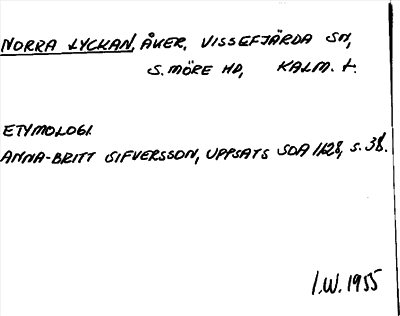 NORRA LYCKAN, ÅKER, VISSEFJÄRDA SN,
S. MÖRE HD, KALM. L.
ETYMOLOGI.
ANNA-BRITT SIFVERSSON, UPPSATS SOA 1628, S. 38.
I.W. 1955